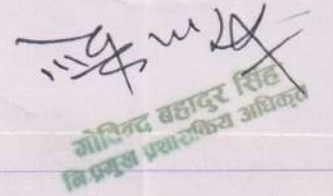 गोविन्द बहादुर सिंह
नि.प्रमुख प्रशासकिय अधिकृत